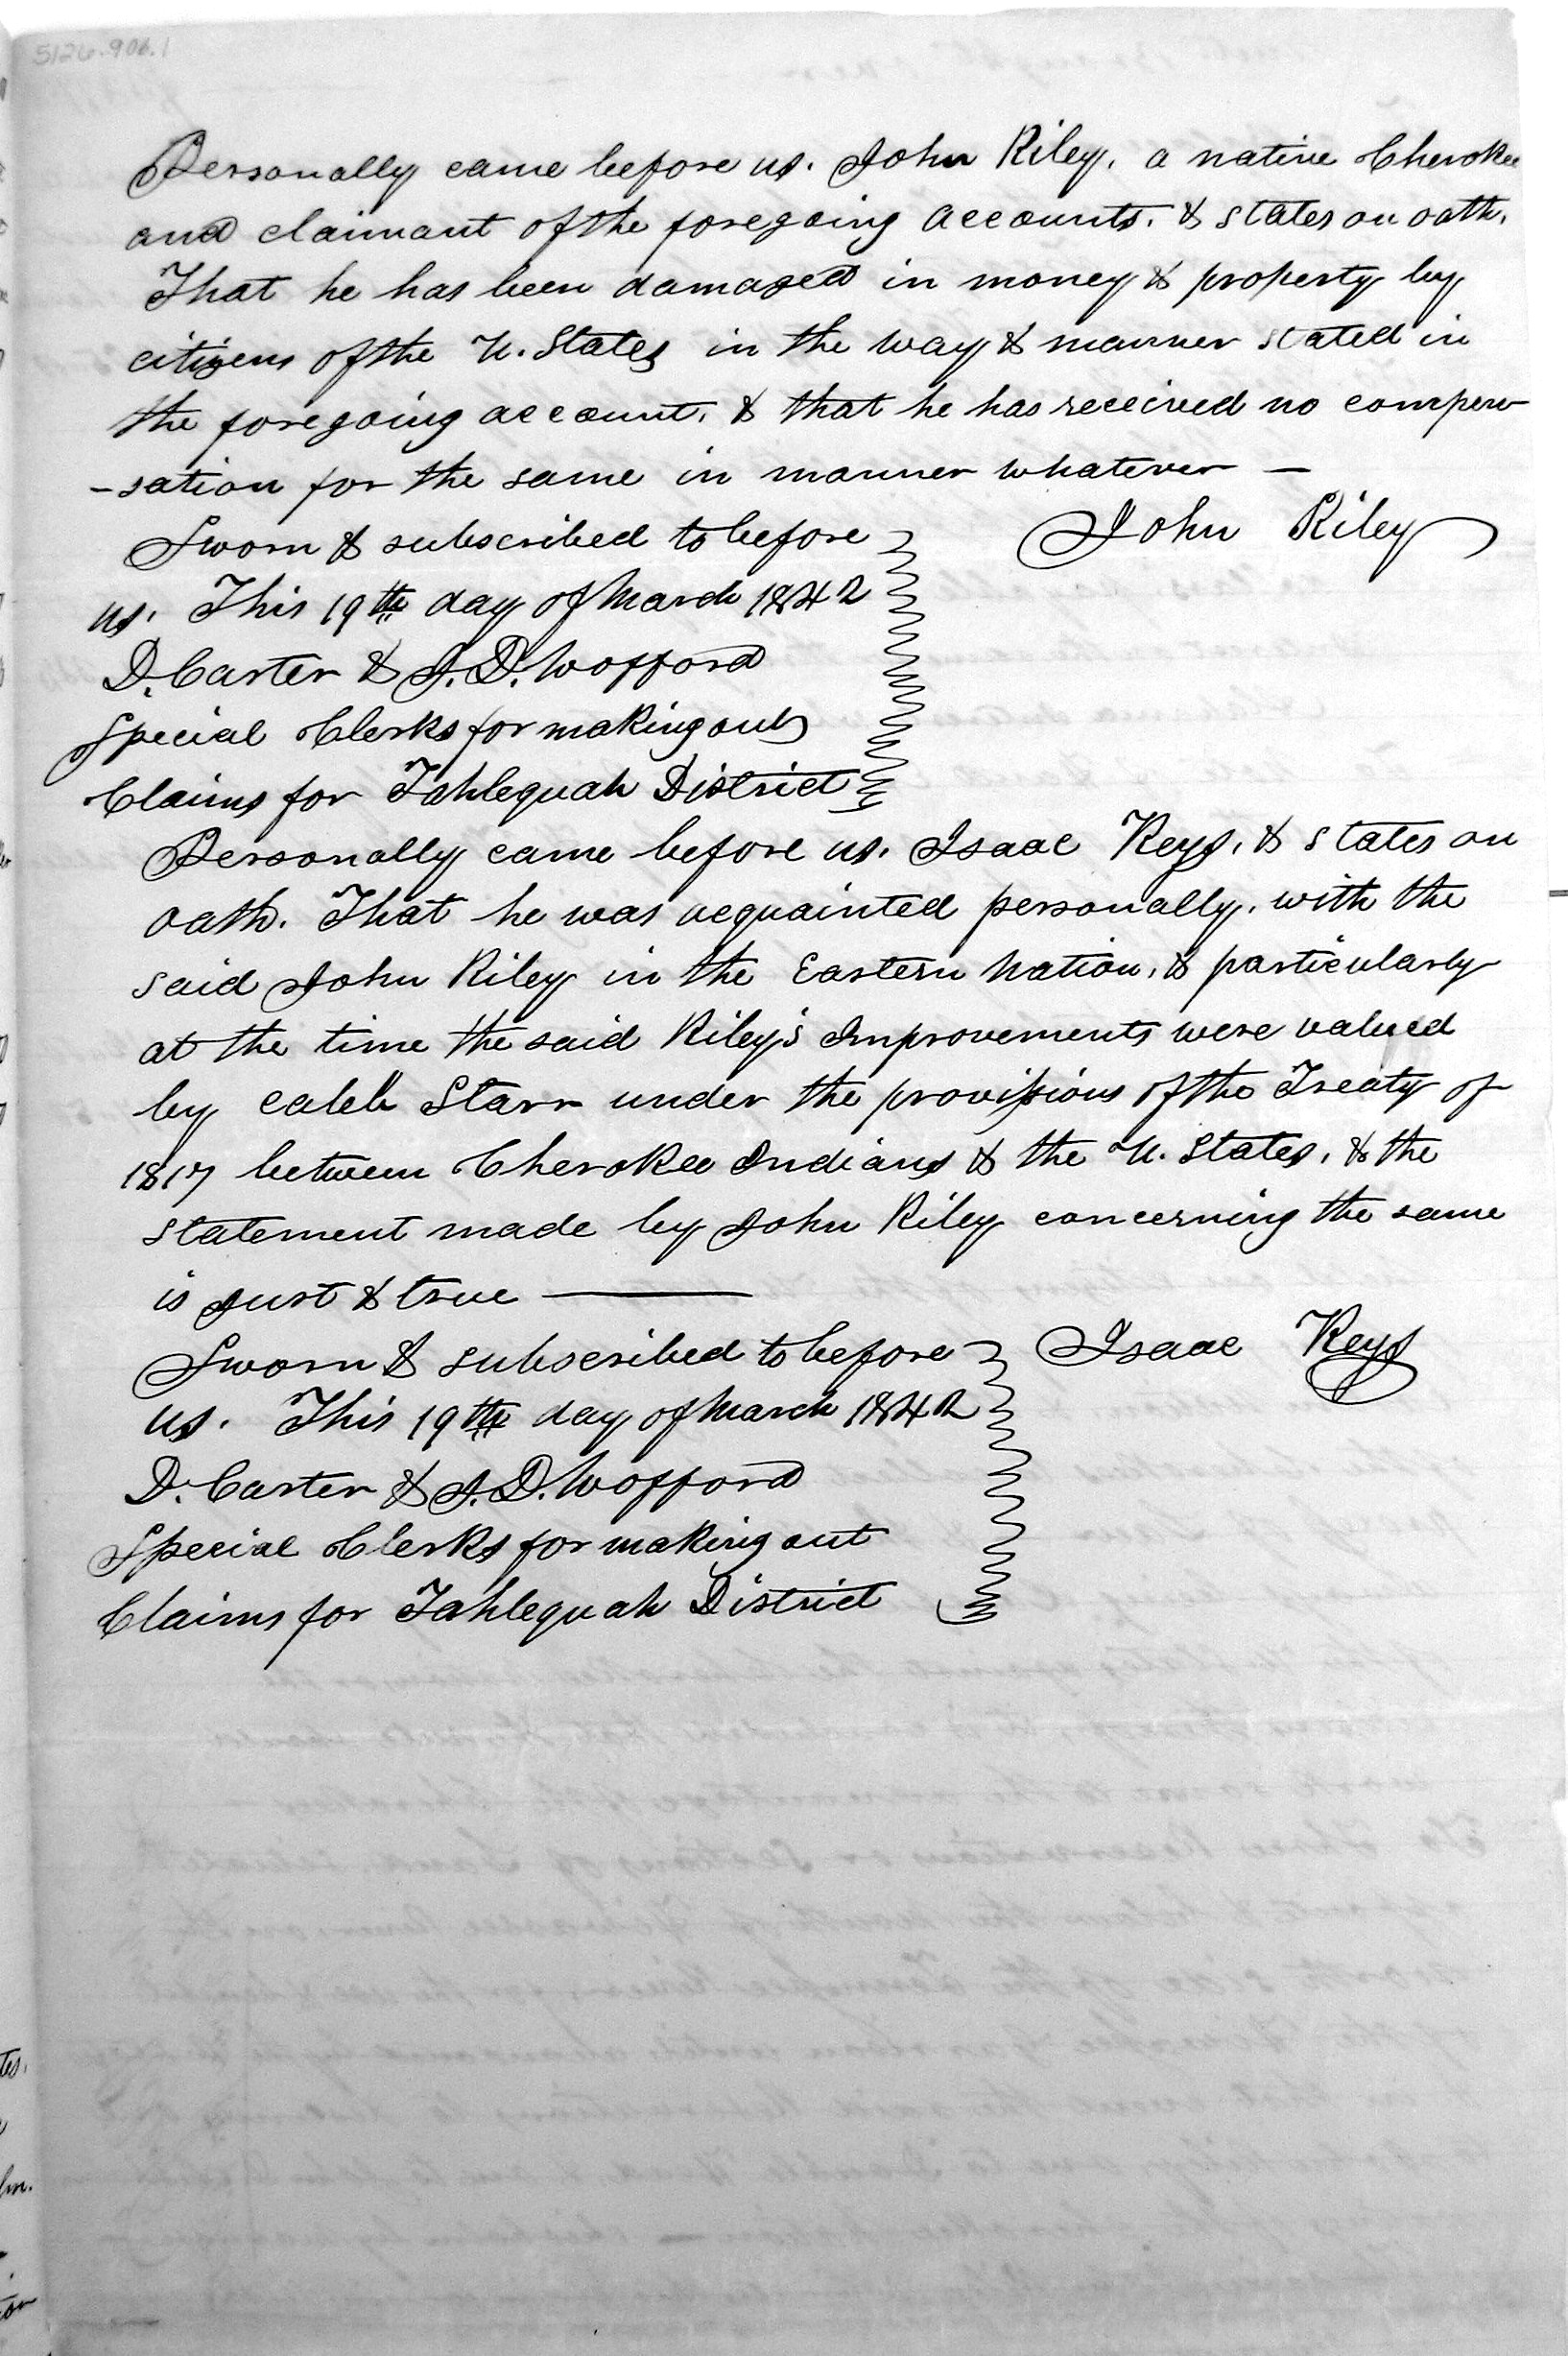 5126.906.1
Personally came before us. John Riley. a native Cherokee
and claimant of the foregoing accounts. & states on oath.
That he has been damaged in money & property by
citizens of the U. States in the way & manner stated in
the foregoing account. & that he has received no compen
-sation for the same in manner whatever —
John Riley
Sworn & subscribed to before
us. This 19th day of March 1842
D. Carter & J. D. Wofford
Special Clerks for making out
Claims for Tahlequah District
Personally came before us. Isaac Keys. & states on
oath. That he was acquainted personally. with the
said John Riley in the Eastern Nation. & particularly
at the time the said Riley's Improvements were valued
by Caleb Starr under the provisions of the Treaty of
1817 between Cherokee Indians & the U. States. & the
statement made by John Riley concerning the same
is just & true —
Isaac Keys
Sworn & subscribed to before
us. This 19th day of March 1842
D. Carter & J. D. Wofford
Special Clerks for making out
Claims for Tahlequah District